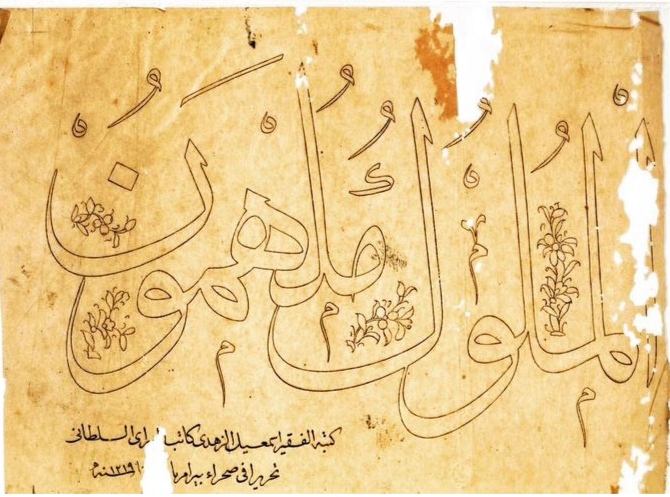 المُلُوكُ مُلهَمُونَ
كتبه الفقير اسمعيل الزهدى كاتب السلطانى
تحريرا فى صحراء ١٢١٩ سنه